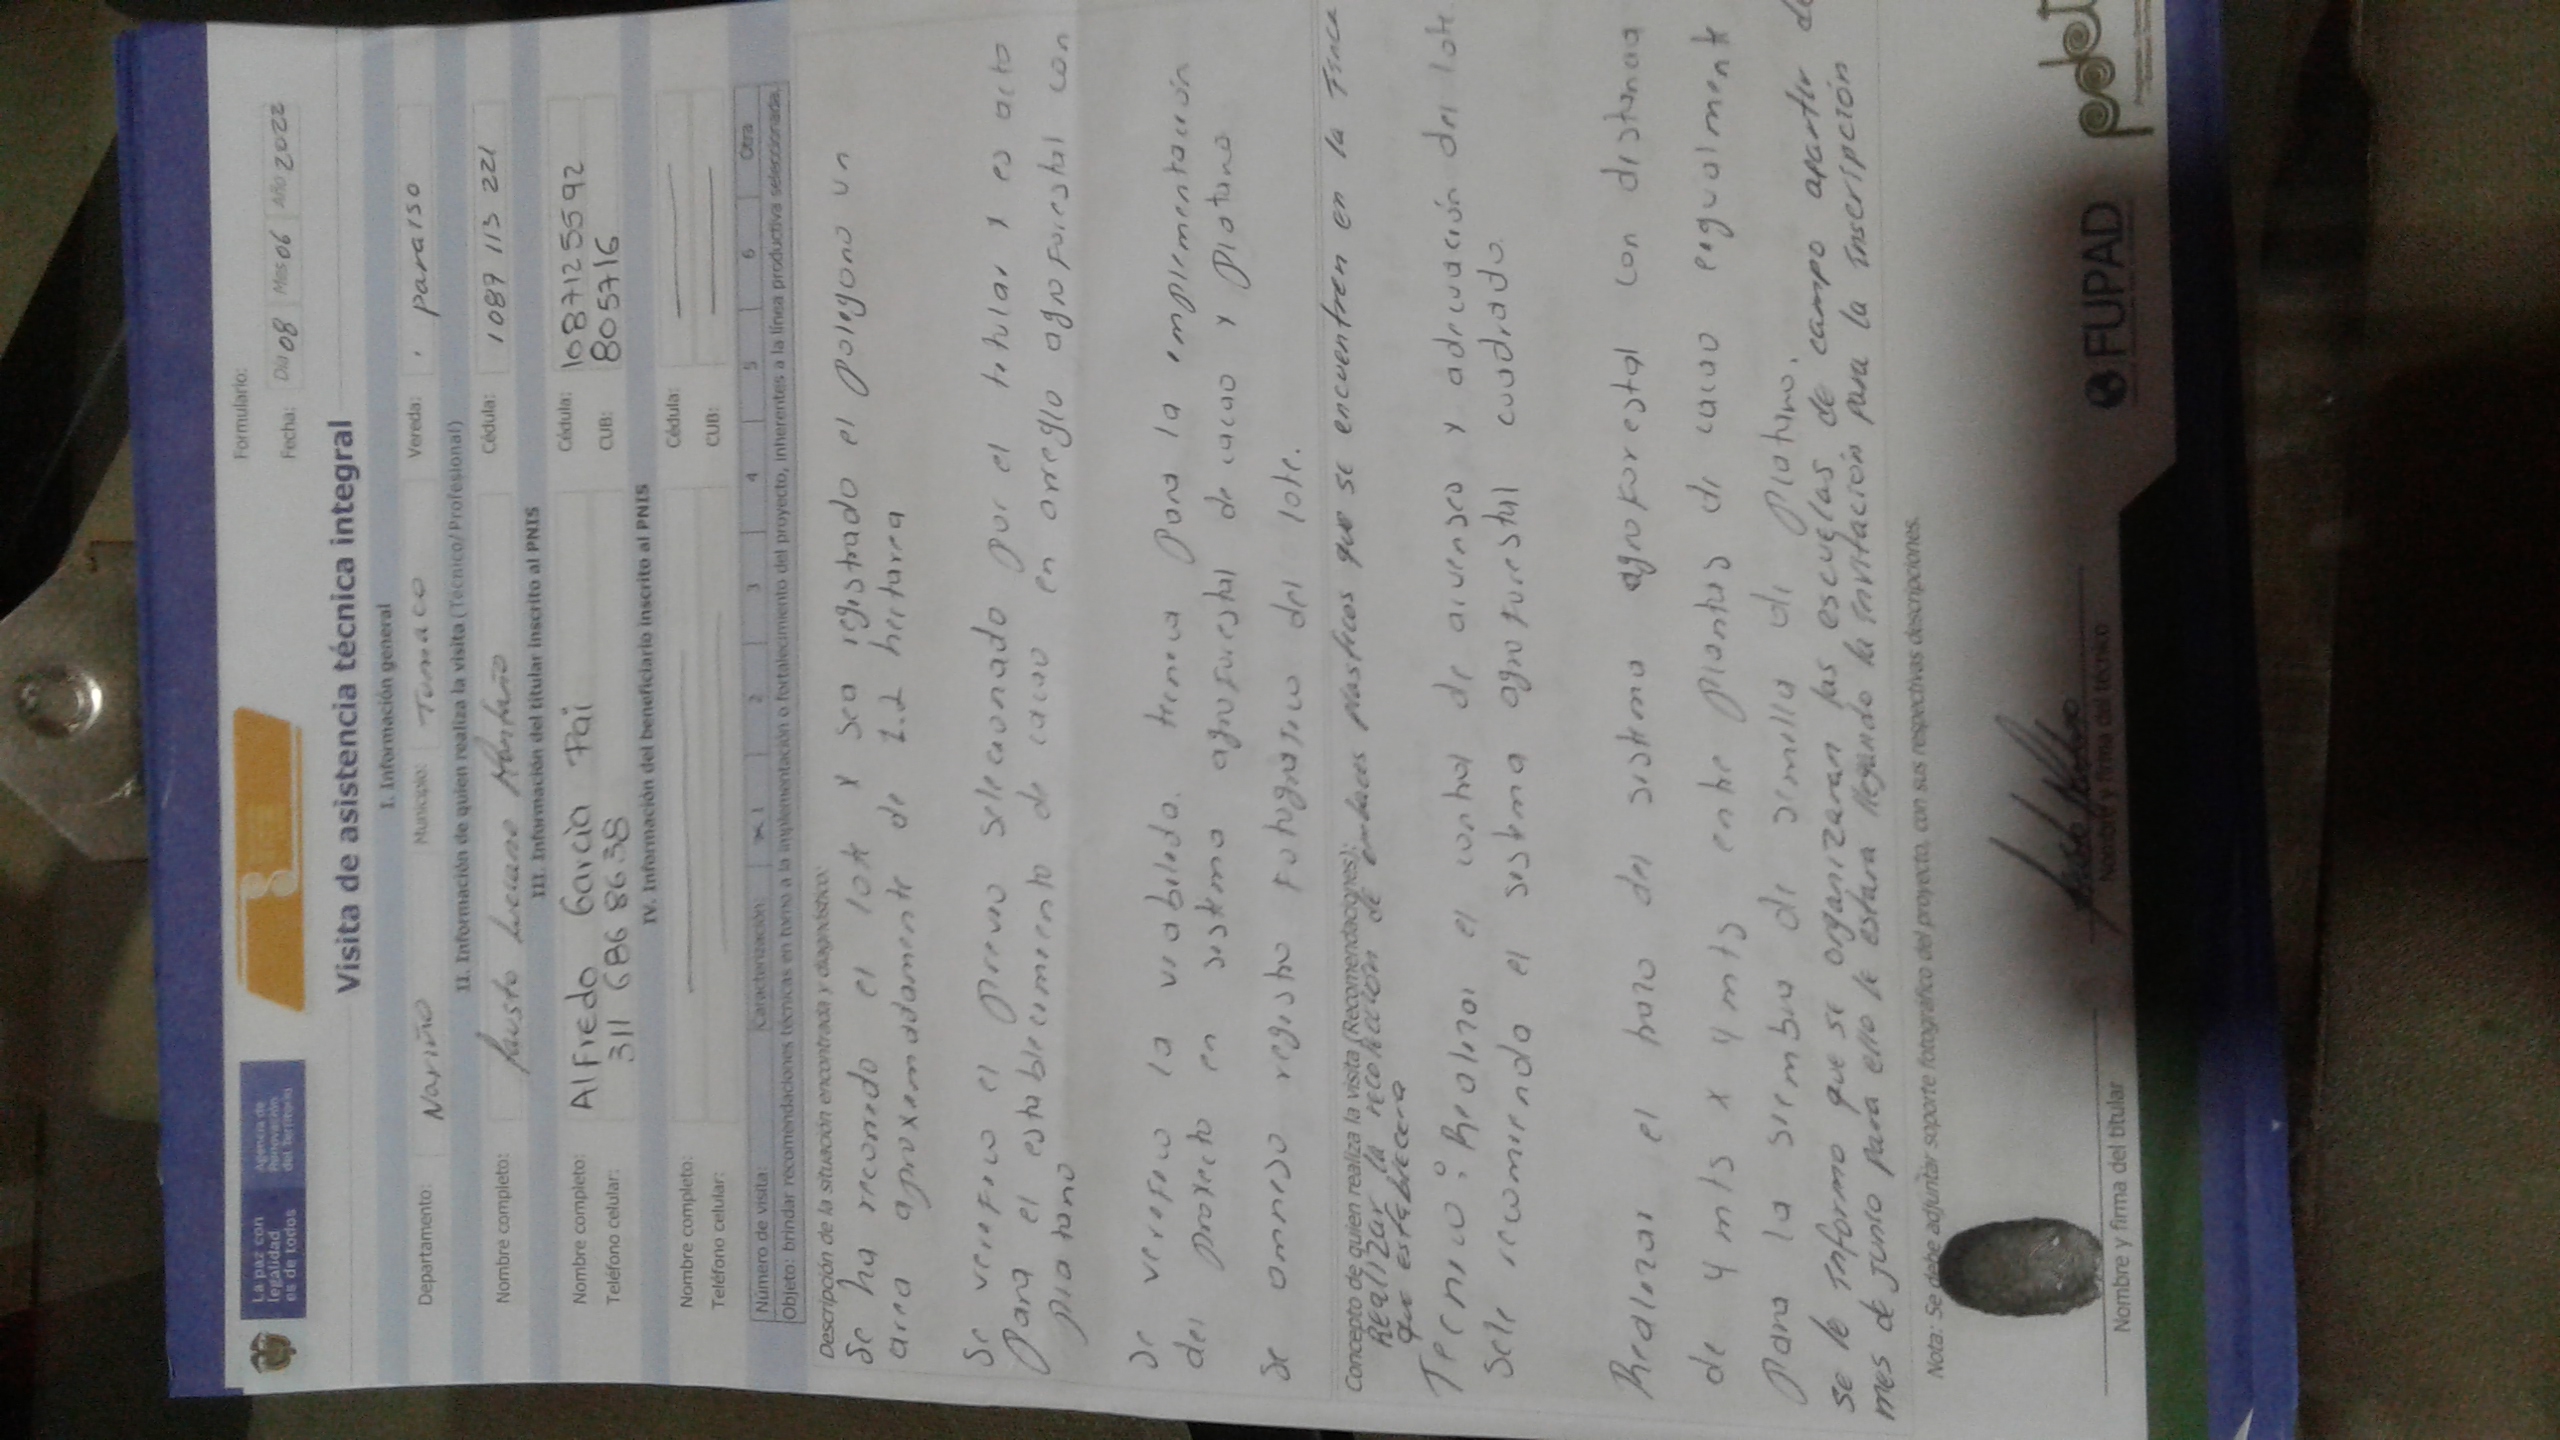 La paz con
legalidad
es de todos
Agencia de
Renovación
del Territorio
Formulario:
Fecha: Día 08 Mes 06 Año 2022
Visita de asistencia técnica integral
I. Información general
Departamento: Nariño Municipio: Tumaco Vereda: paraiso
II. Información de quien realiza la visita (Técnico/Profesional)
Nombre completo: fausto Luciano Montaño Cédula: 1087 113 221
III. Información del titular inscrito al PNIS
Nombre completo: AlFredo Garcia Pai Cédula: 1087125592
Teléfono celular: 311 686 8638 CUB: 805716
IV. Información del beneficiario inscrito al PNIS
Nombre completo: Cédula:
Teléfono celular: CUB:
Número de visita: Caracterización: x 1 2 3 4 5 6 Otra
Objeto: brindar recomendaciones técnicas en torno a la implementación o fortalecimiento del proyecto, inherentes a la línea productiva seleccionada.
Descripción de la situación encontrada y diagnóstico:
Se ha recorrido el lote y sea registrado el poligono un
area aproximadamente de 1.2 hectarea
Se verifico el previo seleccionado por el titular y es acto
para el establecimiento de cacao en arreglo agroforestal con
platano
Se verifico la viabilida. tecnica para la implementación
del proyecto en sistema agroforestal de cacao y platano
Se anneso registro fotografico del lote.
Concepto de quien realiza la visita (Recomendaciones):
REalizar la recolección de embaces plasticos que se encuentren en la Finca
que establecera
Tecnico: Realizar el control de arvenses y adecuación del lote.
Sele recomienda el sistema agroforestal cuadrado.
Realizar el trazo del sistema agroforestal con distancia
de 4 mts x 4 mts entre plantas de cacao egualmente
para la siembra de semilla de platano.
se le informo que se organizaran las escuelas de campo apartir de
mes de junio para ello le estara llegando la invitación para la inscripción
Nota: Se debe adjuntar soporte fotográfico del proyecto, con sus respectivas descripciones.
Nombre y firma del titular
Nombre y firma del técnico
FUPAD
pdet